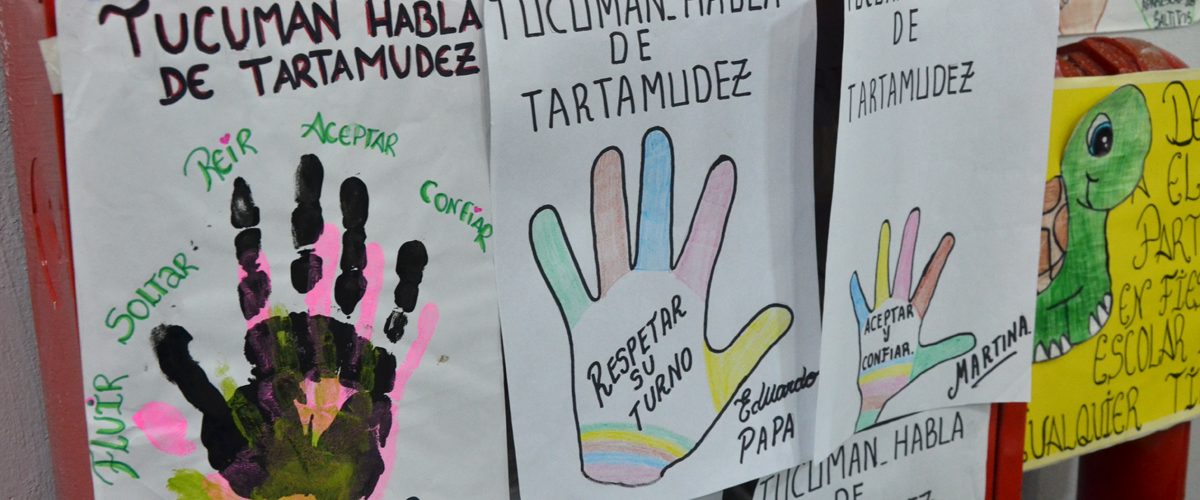 TUCUMAN HABLA
DE TARTAMUDEZ
REIR
ACEPTAR
CONFIAR
SOLTAR
FLUIR
TUCUMAN_HABLA
DE
TARTAMUDEZ
RESPETAR
SU
TURNO
Eduardo
PAPA
DE
TARTAMUDEZ
ACEPTAR
Y
CONFIAR.
MARTINA
TUCUMAN_HABLA
DE
DE
EL
PART
EN FIE
ESCOLAR
UALQUIER TI
SALTITOS